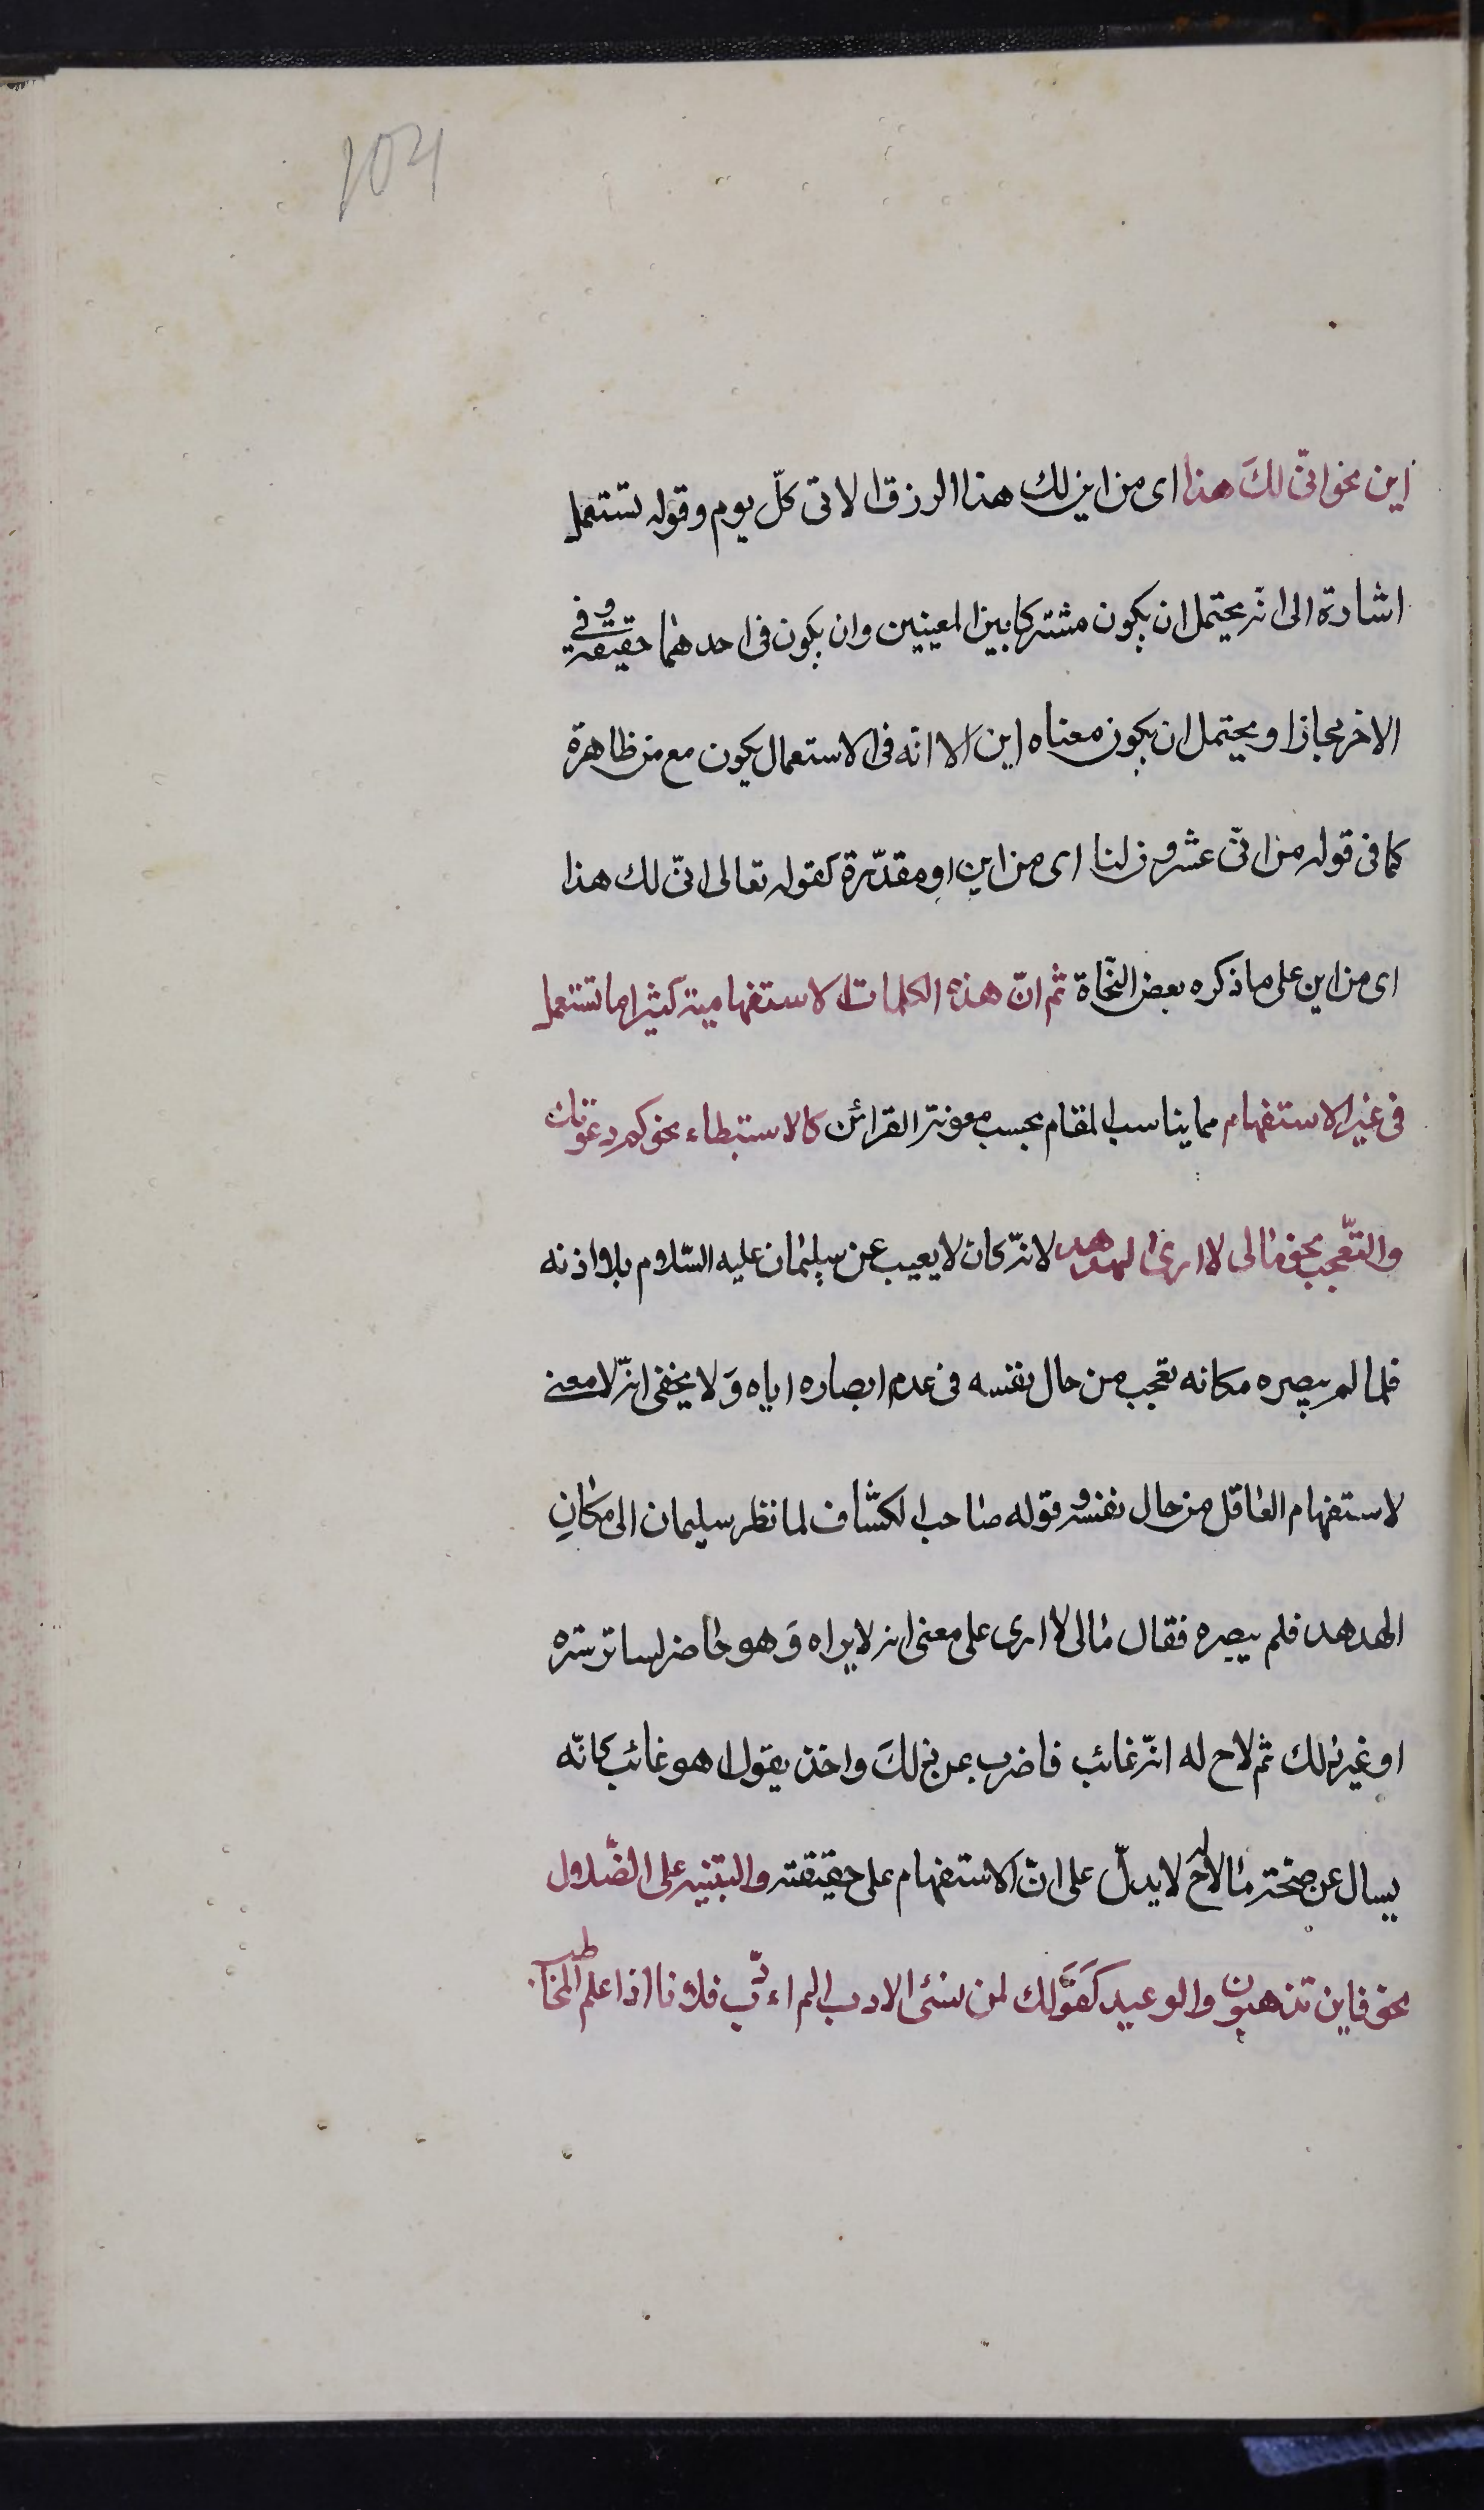 104
اين نحو انّى لكَ هذا اى من اين لك هذا الرزق الاتى كلّ يوم وقوله تستعمل
اشارة الى انّه يحتمل ان يكون مشتركا بين المعينين وان يكون فى احدهما حقيقة وفى
الاخر مجازا ويحتمل ان يكون معناه اين الا انه فى الاستعمال يكون مع من ظاهرة
كما فى قوله من انّى عشرون لنا اى من اين او مقدّرة كقوله تعالى انّى لك هذا
اى من اين على ما ذكره بعض النّحاة ثم انّ هذه الكلمات الاستفهامية كثيرا ما تستعمل
فى غير الاستفهام مما يناسب المقام بحسب معونة القرائن كالاستبطاء نحو كم دعوتك
والتعّجب نحو مالى لا ارى الهدهد لانّه كان لا يعيب عن سليمان عليه السّلام بلا اذنه
فلما لم يبصره مكانه تعجب من حال نفسه فى عدم ابصاره اياه وَلا يخفى انّه لا معنى
لاستفهام العاقل من حال نفسه وقوله صاحب الكشّاف لما نظر سليمان الى مكانِ
الهدهد فلم يبصره فقال مالى لا ارى على معنى انه لا يراه وَهو حاضر لساتر ستره
او غير ذلك ثم لاح له انّه غائب فاضرب عن ذلكَ واخذ يقول اهو غائب كانّه
يسال عن صحّة مالاح له لا يدلّ على انّ الاستفهام على حقيقته والتبنيه على الضّلال
نحو فاين تذهبون والوعيد كقَولَك لمن يسئى الادب الم اءدّب فلانا اذا علم المخاطب